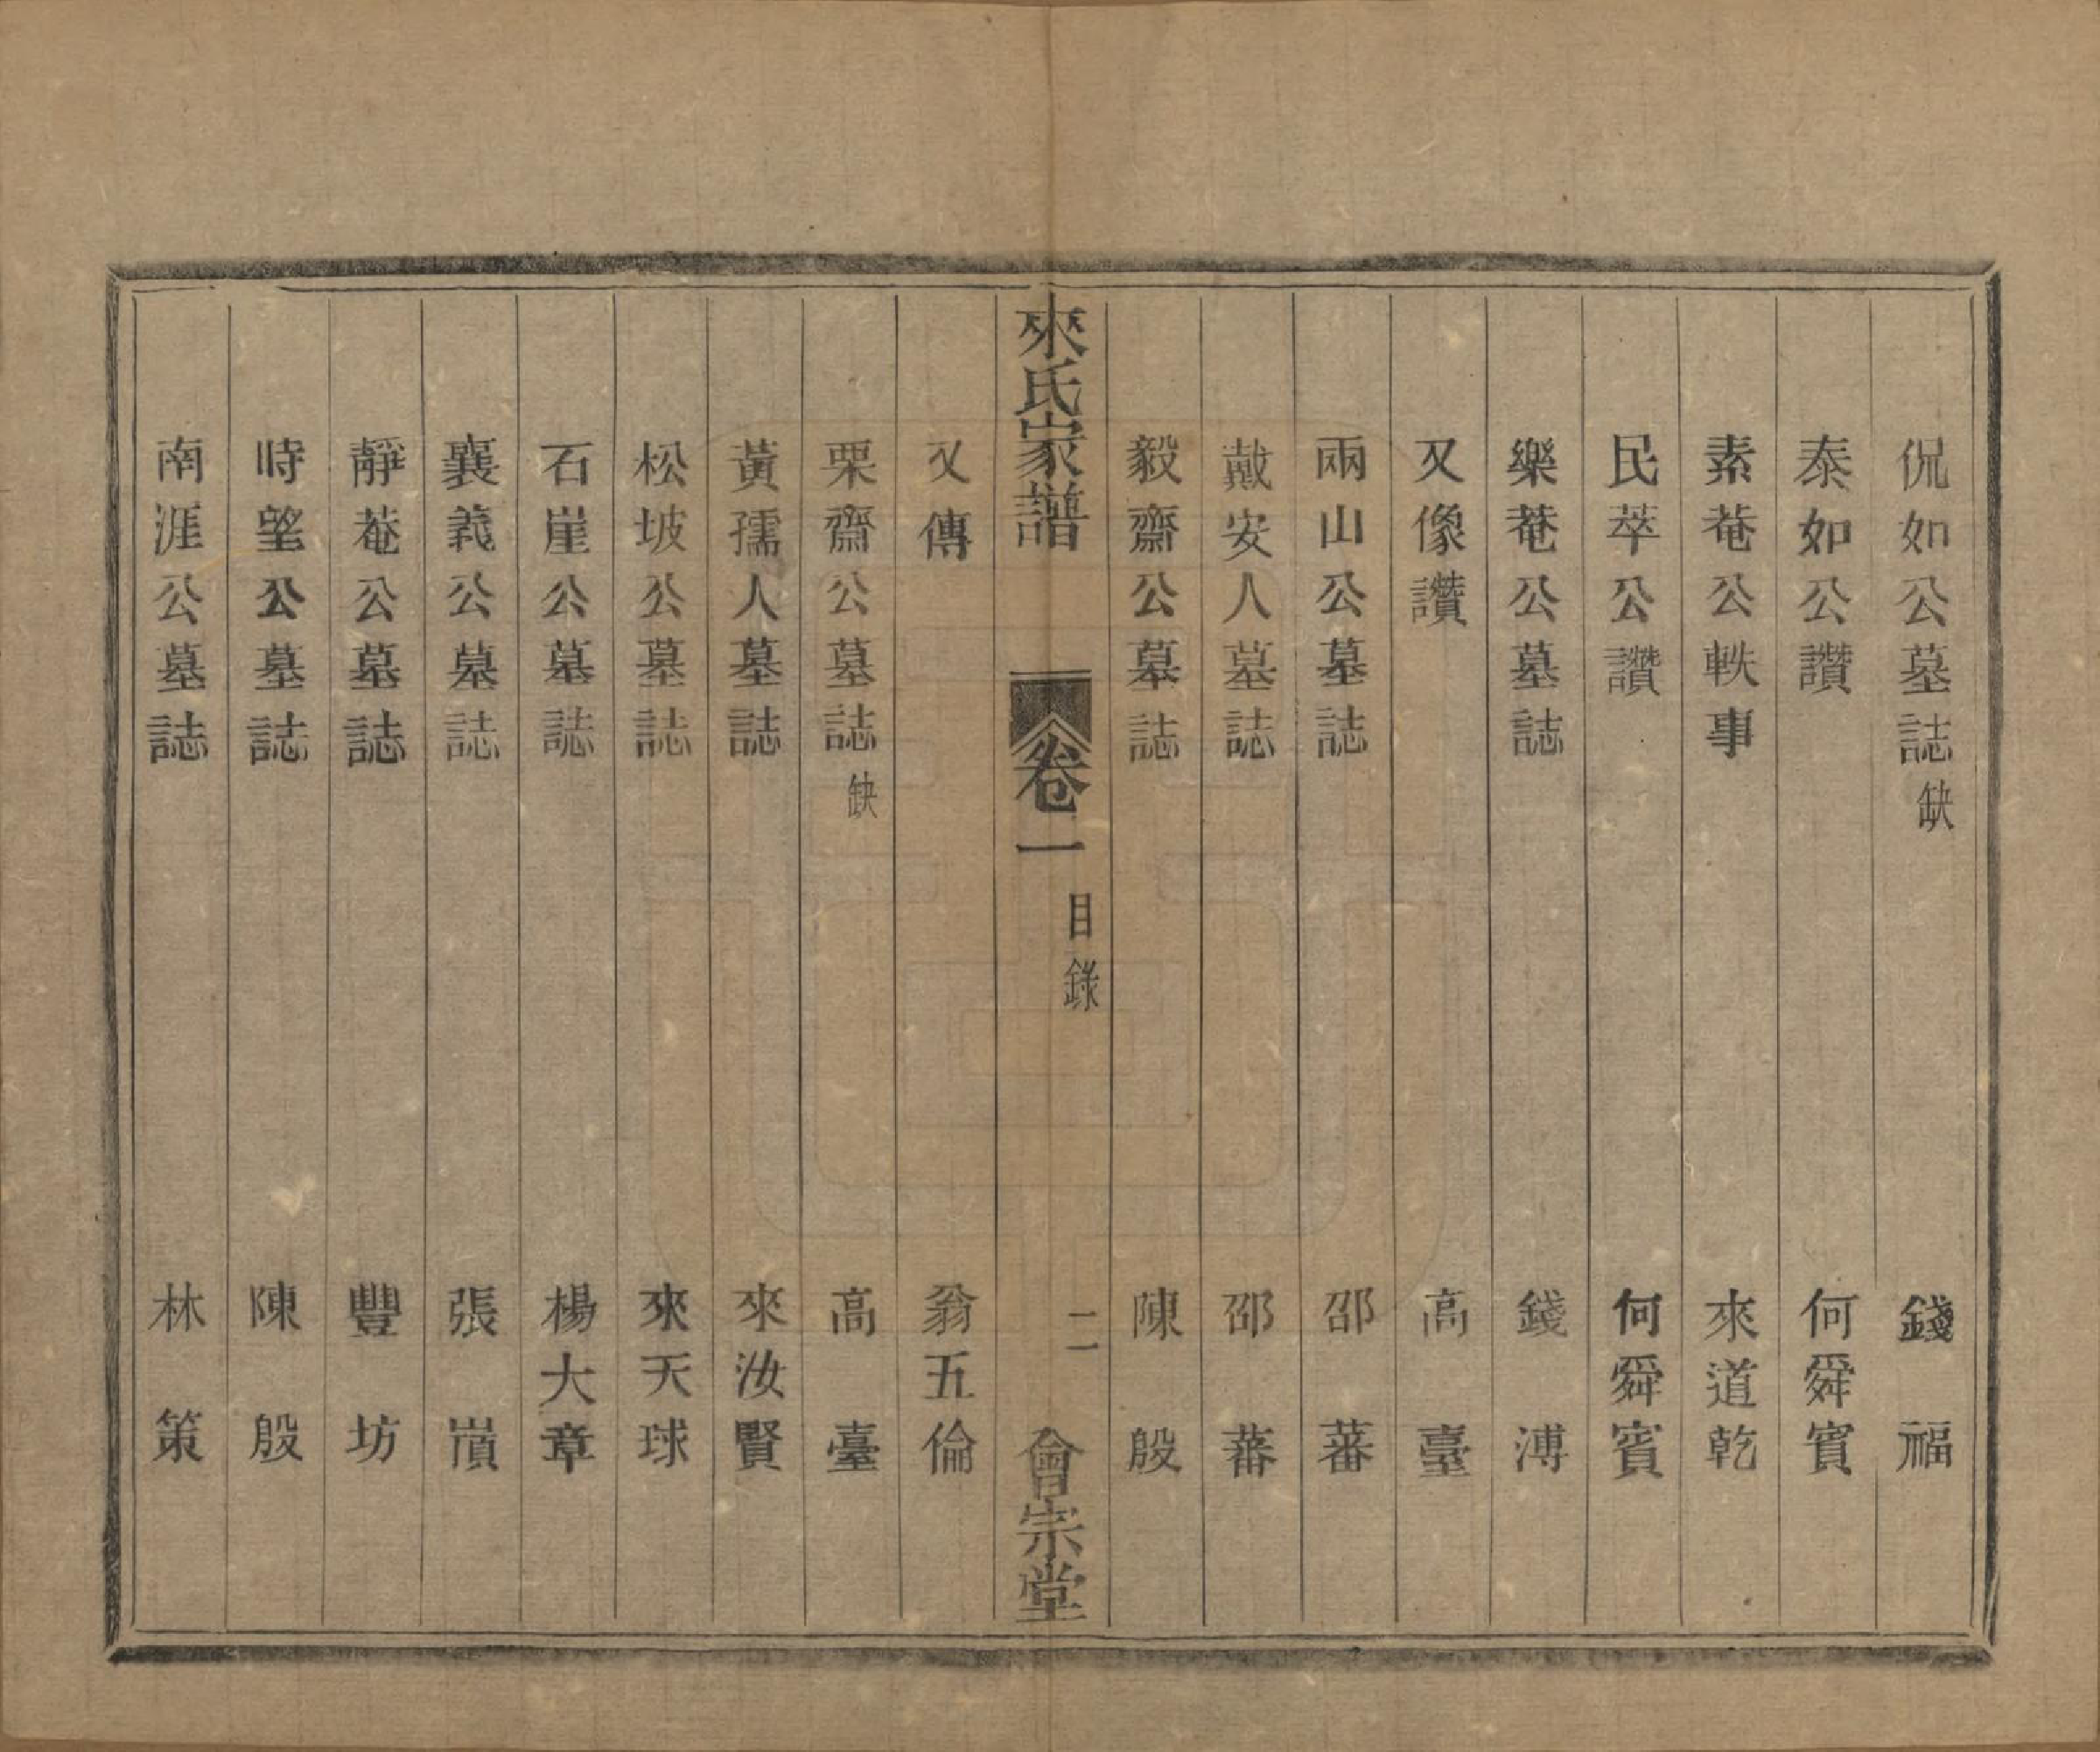 侃如公墓誌缺 錢福
泰如公讚 何舜賓
素菴公軼事 來道乾
民萃公讚 何舜賓
樂菴公墓誌 錢溥
又像讚 高臺
兩山公墓誌 邵蕃
戴安人墓誌 邵蕃
毅齋公墓誌 陳殷
來氏家譜 卷一 目錄 二 會宗堂
又傳 翁五倫
栗齋公墓誌缺 高臺
黃孺人墓誌 來汝賢
松坡公墓誌 來天球
石崖公墓誌 楊大章
襄義公墓誌 張嵿
靜菴公墓誌 豐坊
時望公墓誌 陳殷
南涯公墓誌 林策